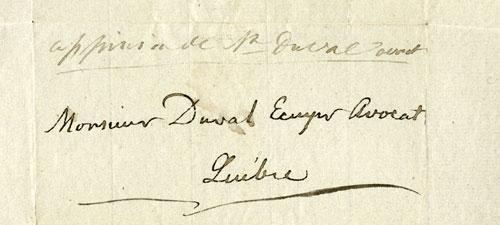 de Mr Duval avocat
Monsieur Duval Ecuyer Avocat
Québec